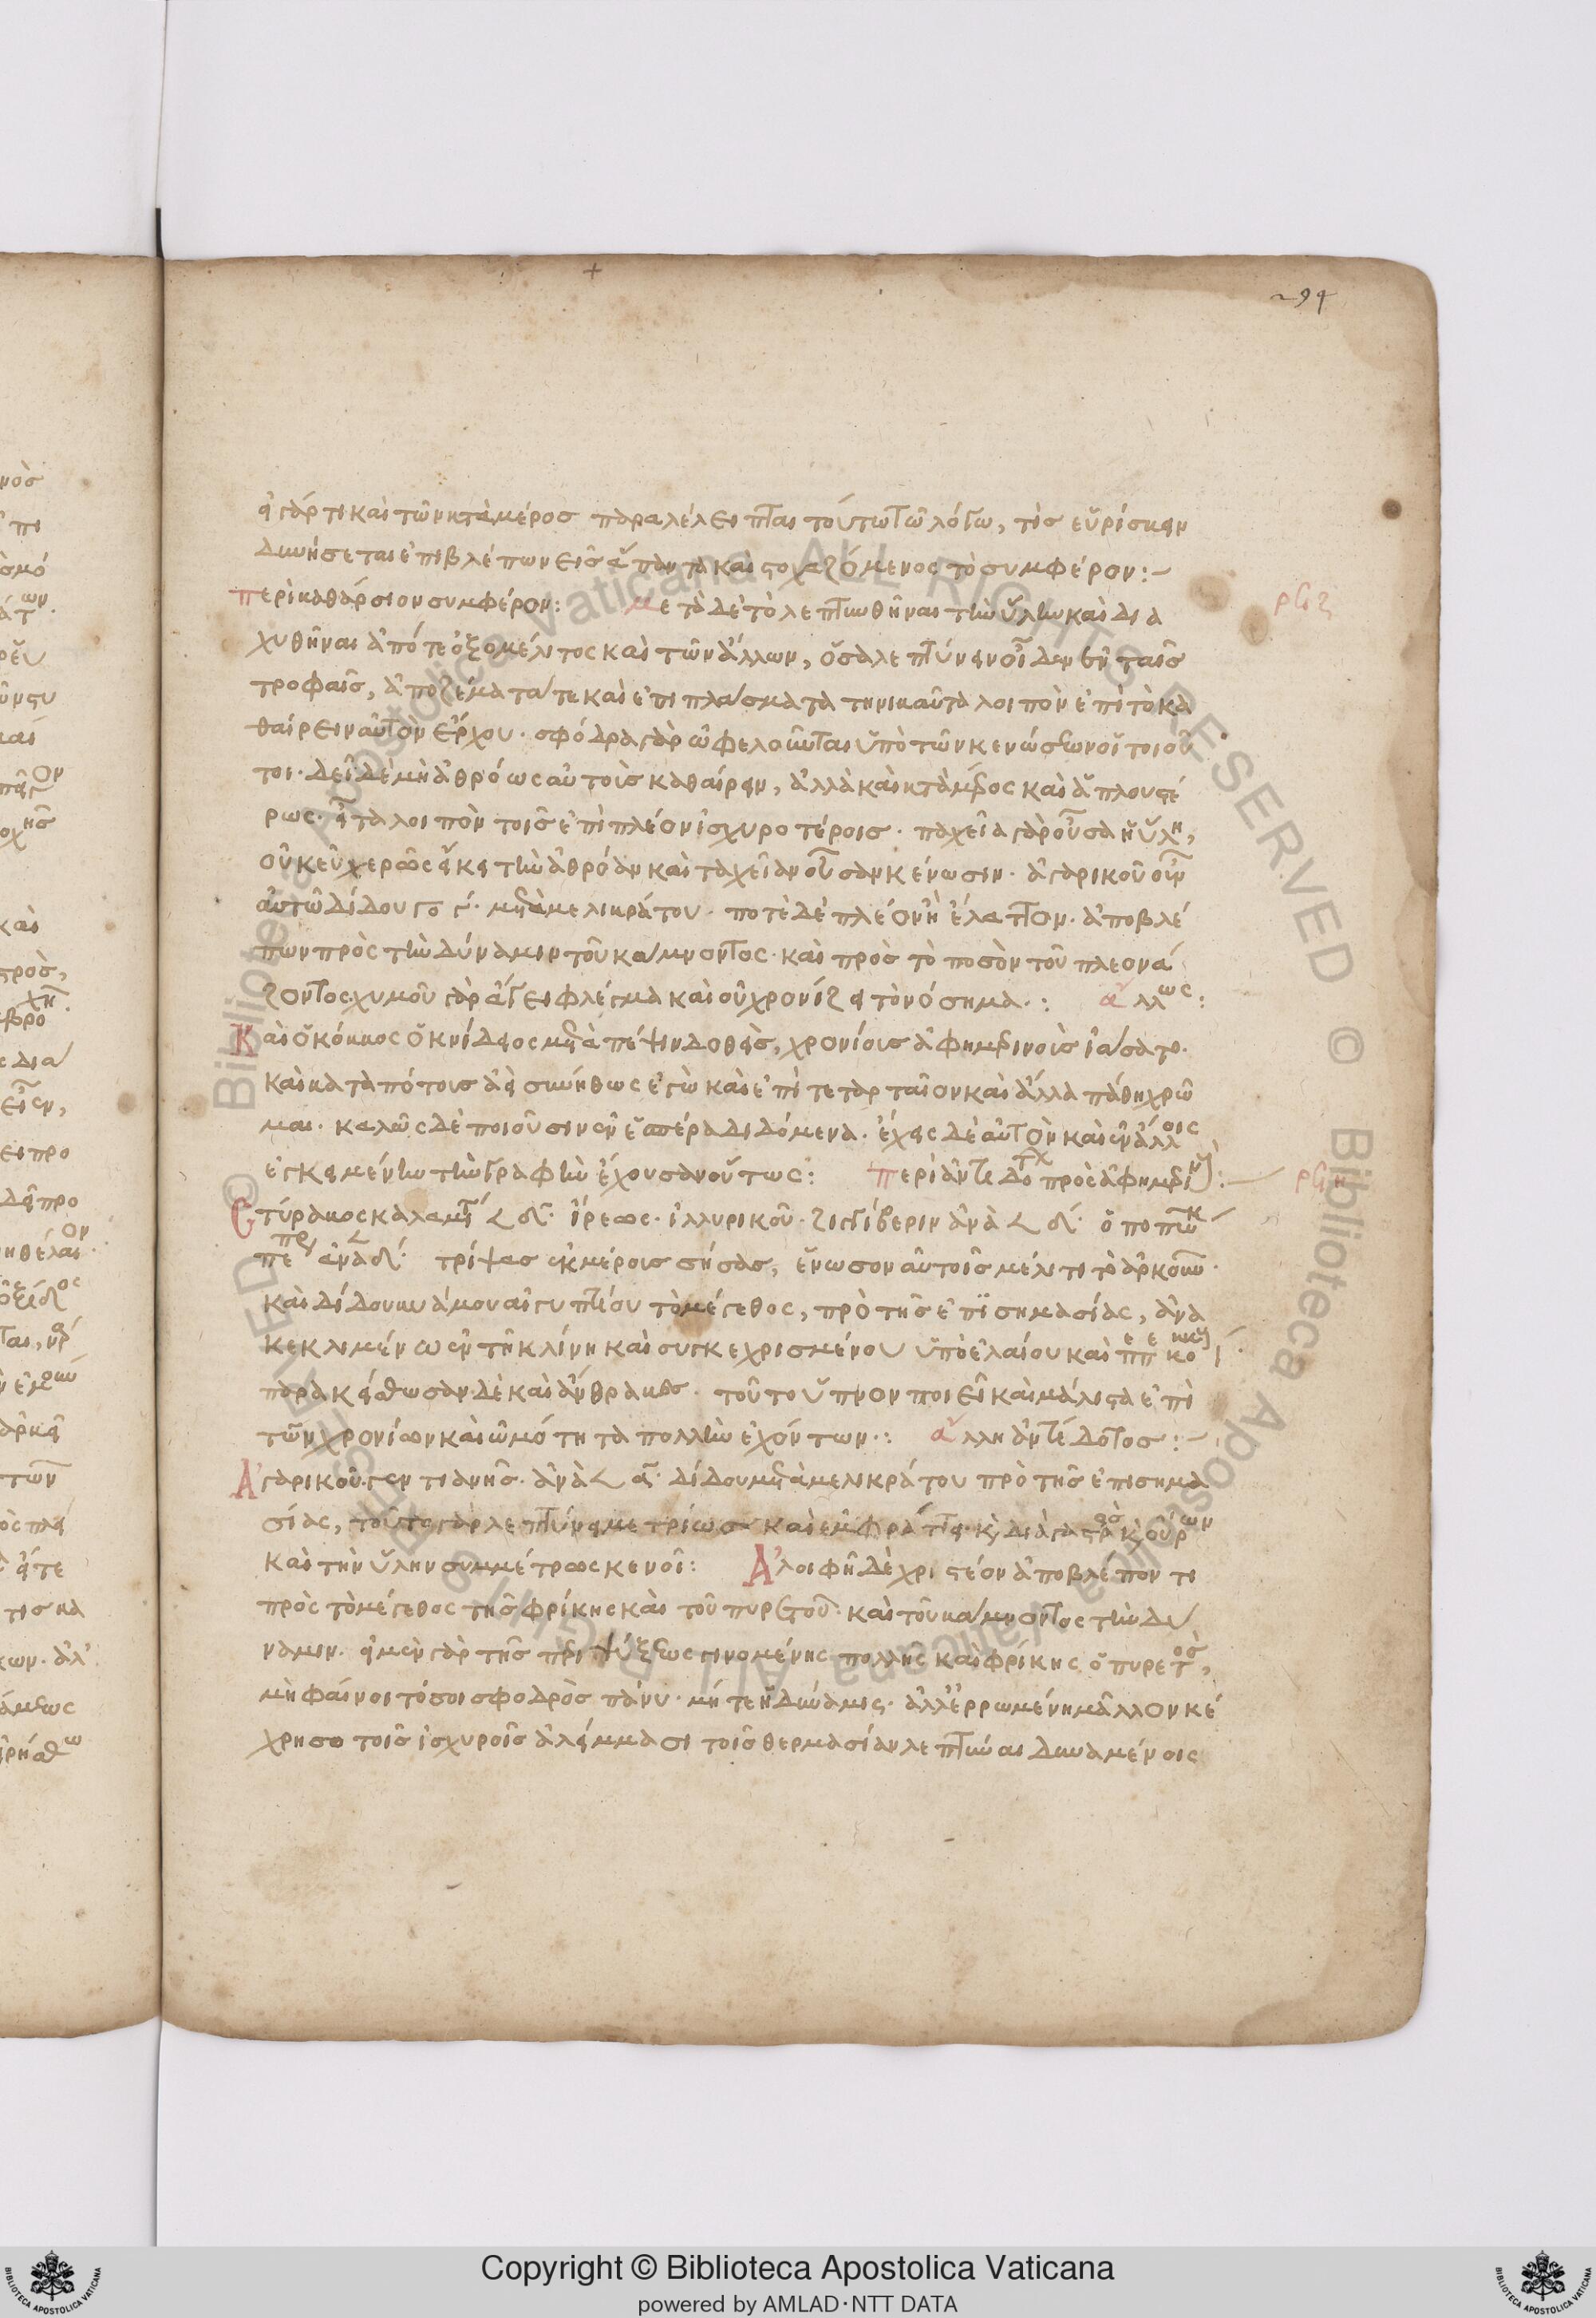 294
εἰ γάρ τι καὶ τῶν κατὰ μέρος παραλέλειπται τούτω τῶ λόγω, τίς εὑρίσκειν
δυνήσεται ἐπιβλέπων εἰς ἅπαντα καὶ στοχαζόμενος τὸ συμφέρον:
περὶ καθάρσιον συμφέρον: Μετὰ δὲ τὸ λεπτυνθῆναι τὴν ὕλην καὶ δια
χυθῆναι ἀπό τε ὀξομέλιτος καὶ τῶν ἄλλων, ὅσα λεπτύνειν οἶδεν ἐν ταῖς
τροφαῖς, ἀποζέματα τε καὶ ἐπιπλάσματα τηνικαῦτα λοιπὸν ἐπὶ τὸ κα
θαίρειν αὐτὸν ἔρχου. σφόδρα γὰρ ὠφελοῦνται ὑπὸ τῶν κενώσεων οἱ τοιοῦ
τοι. δεῖ δὲ μὴ ἀθρόως αὐτοὺς καθαίρειν, ἀλλὰ καὶ κατὰ μέρος καὶ ἁπλουστέ
ρως. εἶτα λοιπὸν τοῖς ἐπὶ πλέον ἰσχυροτέροις. παχεῖα γὰρ οὖσα ἡ ὕλη,
οὐκ εὐχερῶς εἴκει τὴν ἀθρόαν καὶ ταχεῖαν οὖσαν κένωσιν. ἀγαρικοῦ οὖν
αὐτῶ δίδου μετὰ μελικράτου. ποτὲ δὲ πλέον ἢ ἔλαττον. ἀποβλέ
πων πρὸς τὴν δύναμιν τοῦ κάμνοντος. καὶ πρὸς τὸ ποσὸν τοῦ πλεονά
ζοντος χυμοῦ γὰρ ἄγει φλέγμα καὶ οὐ χρονίζει τὸ νόσημα.: ἄλλως:
Καὶ ὁ κόκκος ὁ κνίδειος μετὰ πέψιν δοθεὶς, χρονίους ἀφημερινοὺς ἰάσατο.
καὶ καταπότοις ἀεὶ συνήθως ἐγὼ καὶ ἐπὶ τεταρταῖον καὶ ἄλλα πάθη χρῶ
μαι. καλῶς δὲ ποιοῦσιν ἐν ἑσπέρα διδόμενα. ἔχεις δὲ αὐτὸν καὶ ἐν ἄλλοις
ἐγκειμένην τὴν γραφὴν ἔχουσαν οὕτως: περὶ ἀντιδότου πρὸς ἀφημερινούς:
Στύρακος καλαμίτου δ. ἴρεως. ἰλλυρικοῦ. ζιγγίβεριν ἀνὰ δ. ὀποπάνακος
πεπέρεως ἀνὰ δ. τρίψας ἐκ μέροις σήσας, ἕνωσον αὐτοῖς μέλιτι τὸ ἀρκοῦν.
καὶ δίδου κυάμου αἰγυπτίου τὸ μέγεθος, πρὸ τῆς ἐπισημασίας, ἀνα
κεκλιμένω ἐν τῆ κλίνη καὶ συγκεχρισμένου ὑπὸ ἐλαίου καὶ πεπέρεως κοκκί.
παρακείσθωσαν δὲ καὶ ἄνθρακες. τοῦτο ὕπνον ποιεῖ καὶ μάλιστα ἐπὶ
τῶν χρονίων καὶ ὠμότητα πολλὴν ἐχόντων.: ἄλλη ἀντίδοτος:
Ἀγαρικοῦ. γεντιανῆς. ἀνὰ α. δίδου μετὰ μελικράτου πρὸ τῆς ἐπισημα
σίας, τοῦτο γὰρ λεπτύνει μετρίως καὶ ἐμφράττει. καὶ διὰ γαστρὸς καὶ οὔρων
καὶ τὴν ὕλην συμμέτρως κενοῖ: Ἀλοιφῆ δὲ χριστέον ἀποβλέποντι
πρὸς τὸ μέγεθος τῆς φρίκης καὶ τοῦ πυρετοῦ. καὶ τοῦ κάμνοντος τὴν δύ
ναμιν. εἰ μὲν γὰρ τῆς περιψύξεως γινομένης πολλῆς καὶ φρίκης ὁ πυρετὸς,
μὴ φαίνοιτό σοι σφοδρὸς πάνυ. μήτε ἡ δύναμις. ἀλλ' ἐρρωμένη μᾶλλον κέ
χρησο τοῖς ἰσχυροῖς ἀλείμμασι τοῖς θερμασίαν λεπτῦναι δυναμένοις
Copyright © Biblioteca Apostolica Vaticana
powered by AMLAD·NTT DATA